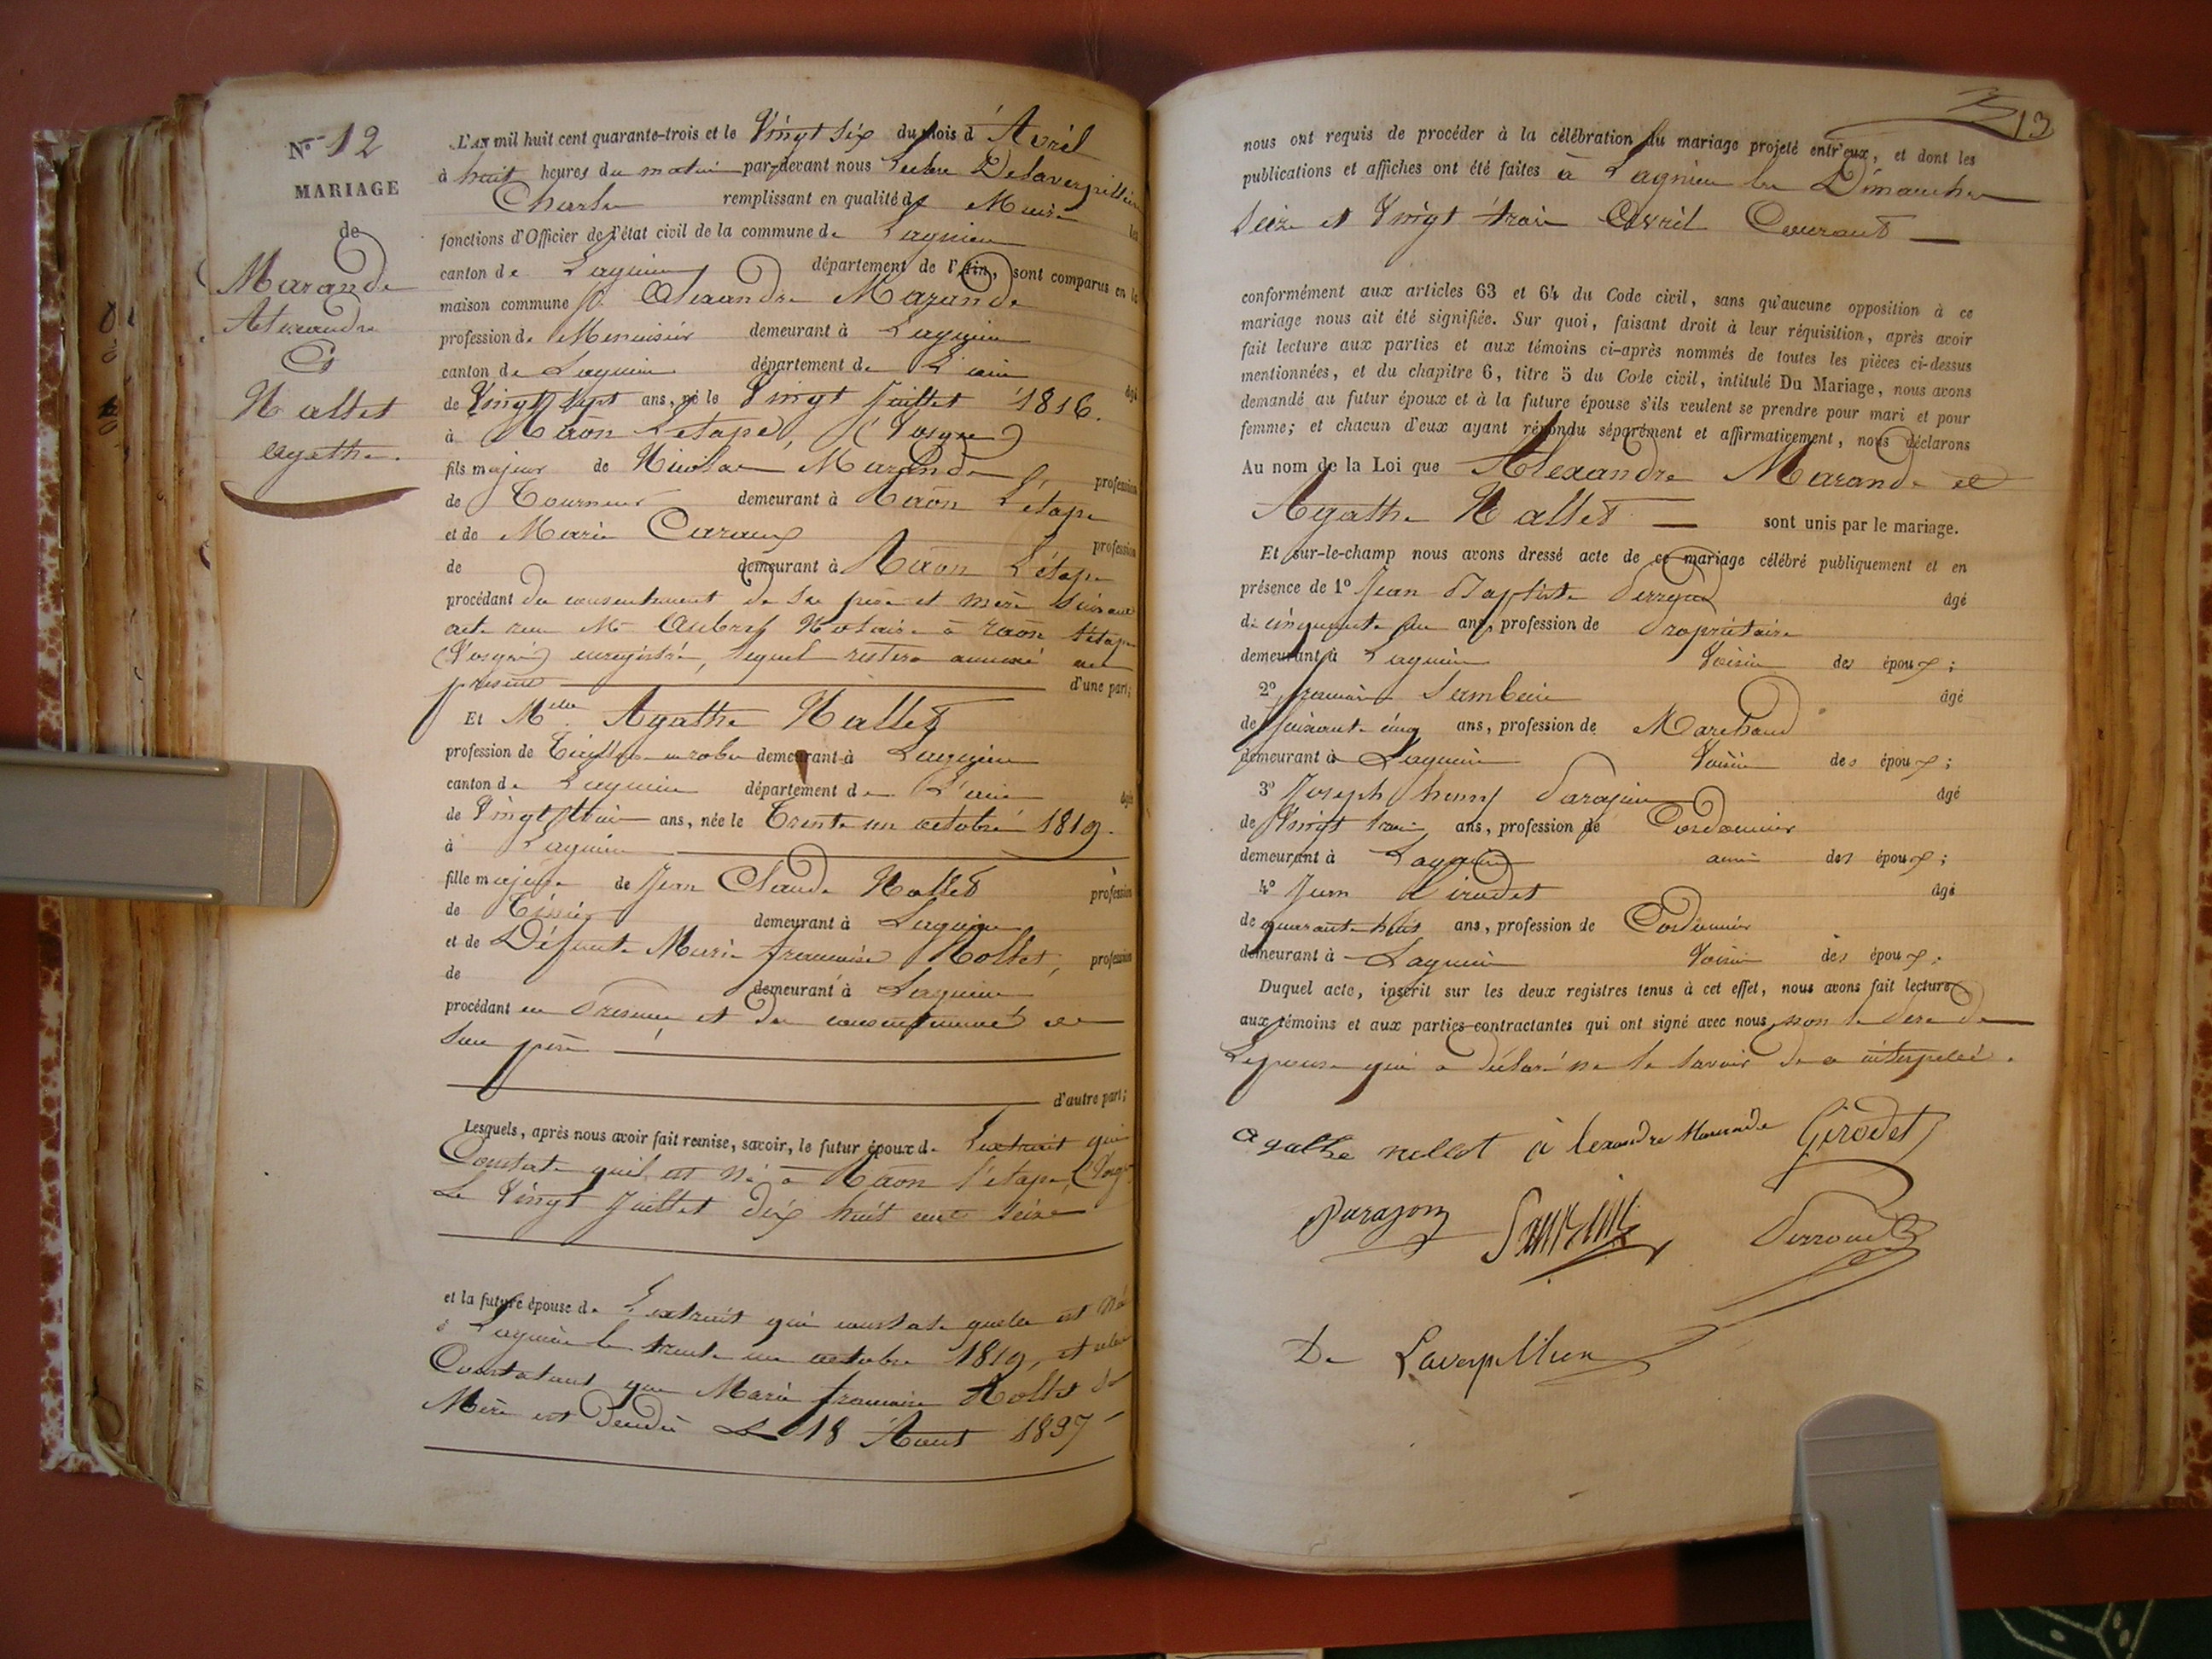 N.º 12
MARIAGE
de
Marande
Alexandre
Et
Nallet
agathe.
L'AN mil huit cent quarante-trois et le Vingt Six du mois d'Avril
à huit heures du matin par-devant nous Delaverpillière
Charles remplissant en qualité de Maire les
fonctions d'Officier de l'état civil de la commune de Lagnieu
canton de Lagnieu département de l'Ain, sont comparus en la
maison commune Alexandre Marande
profession de Menuisier demeurant à Lagnieu
canton de Lagnieu département de L'ain âgé
de Vingt Sept ans, né le Vingt Juillet 1816.
à Raon L'étape, (Vosges)
fils majeur de Nicolas Marande, profession
de Tourneur demeurant à Raon L'étape
et de Marie profession
de demeurant à Raon L'étape
procédant du consentement de ses père et mère Suivant
acte reçu Me Aubry Notaire à raon l'étape
(Vosges) enregistré, lequel restera annexé au
présent d'une part;
Et Melle Agathe Nallet
profession de Tailleuse en robes demeurant à Lagnieu
canton de Lagnieu département de L'ain âgée
de Vingt trois ans, née le Trente un octobre 1819.
à Lagnieu
fille majeure de Jean Claude Nallet profession
de demeurant à Lagnieu
et de Défunte Marie françoise Rollet, profession
de demeurant à Lagnieu
procédant en Présence et du consentement de
Son père
d'autre part;
Lesquels, après nous avoir fait remise, savoir, le futur époux de L'extrait qui
Constate qu'il est né à Raon l'étape, (Vosges)
Le Vingt Juillet dix huit cent Seize
et la future épouse de L'extrait qui constate quelle est né
à Lagnieu le trente un octobre 1819, et celui
Constatant que Marie françoise Rollet Sa
Mère est décédée Le 18 Aout 1837
13
nous ont requis de procéder à la célébration du mariage projeté entr'eux, et dont les
publications et affiches ont été faites à Lagnieu les Dimanches
Seize et Vingt trois Avril Courant
conformément aux articles 63 et 64 du Code civil, sans qu'aucune opposition à ce
mariage nous ait été signifiée. Sur quoi, faisant droit à leur réquisition, après avoir
fait lecture aux parties et aux témoins ci-après nommés de toutes les pièces ci-dessus
mentionnées, et du chapitre 6, titre 5 du Code civil, intitulé Du Mariage, nous avons
demandé au futur époux et à la future épouse s'ils veulent se prendre pour mari et pour
femme; et chacun d'eux ayant répondu séparément et affirmativement, nous déclarons
Au nom de la Loi que Alexandre Marande et
Agathe Nallet sont unis par le mariage.
Et sur-le-champ nous avons dressé acte de ce mariage célébré publiquement et en
présence de 1º Jean Baptiste âgé
de cinquante ans, profession de Propriétaire
demeurant à Lagnieu Voisin des époux;
2º françois âgé
de Soixante cinq ans, profession de Marchand
demeurant à Lagnieu Voisin des époux;
3º Joseph henry Paragon âgé
de Vingt trois ans, profession de Cordonnier
demeurant à Lagnieu ami des époux;
4º Jean Girodet âgé
de quarante huit ans, profession de Cordonnier
demeurant à Lagnieu Voisin des époux.
Duquel acte, inscrit sur les deux registres tenus à cet effet, nous avons fait lecture
aux témoins et aux parties contractantes qui ont signé avec nous, non le Père de
L'épouse qui a déclaré ne le Savoir de ce interpellé.
agathe nallet alexandre Marande Girodet
Paragon
De Laverpillière